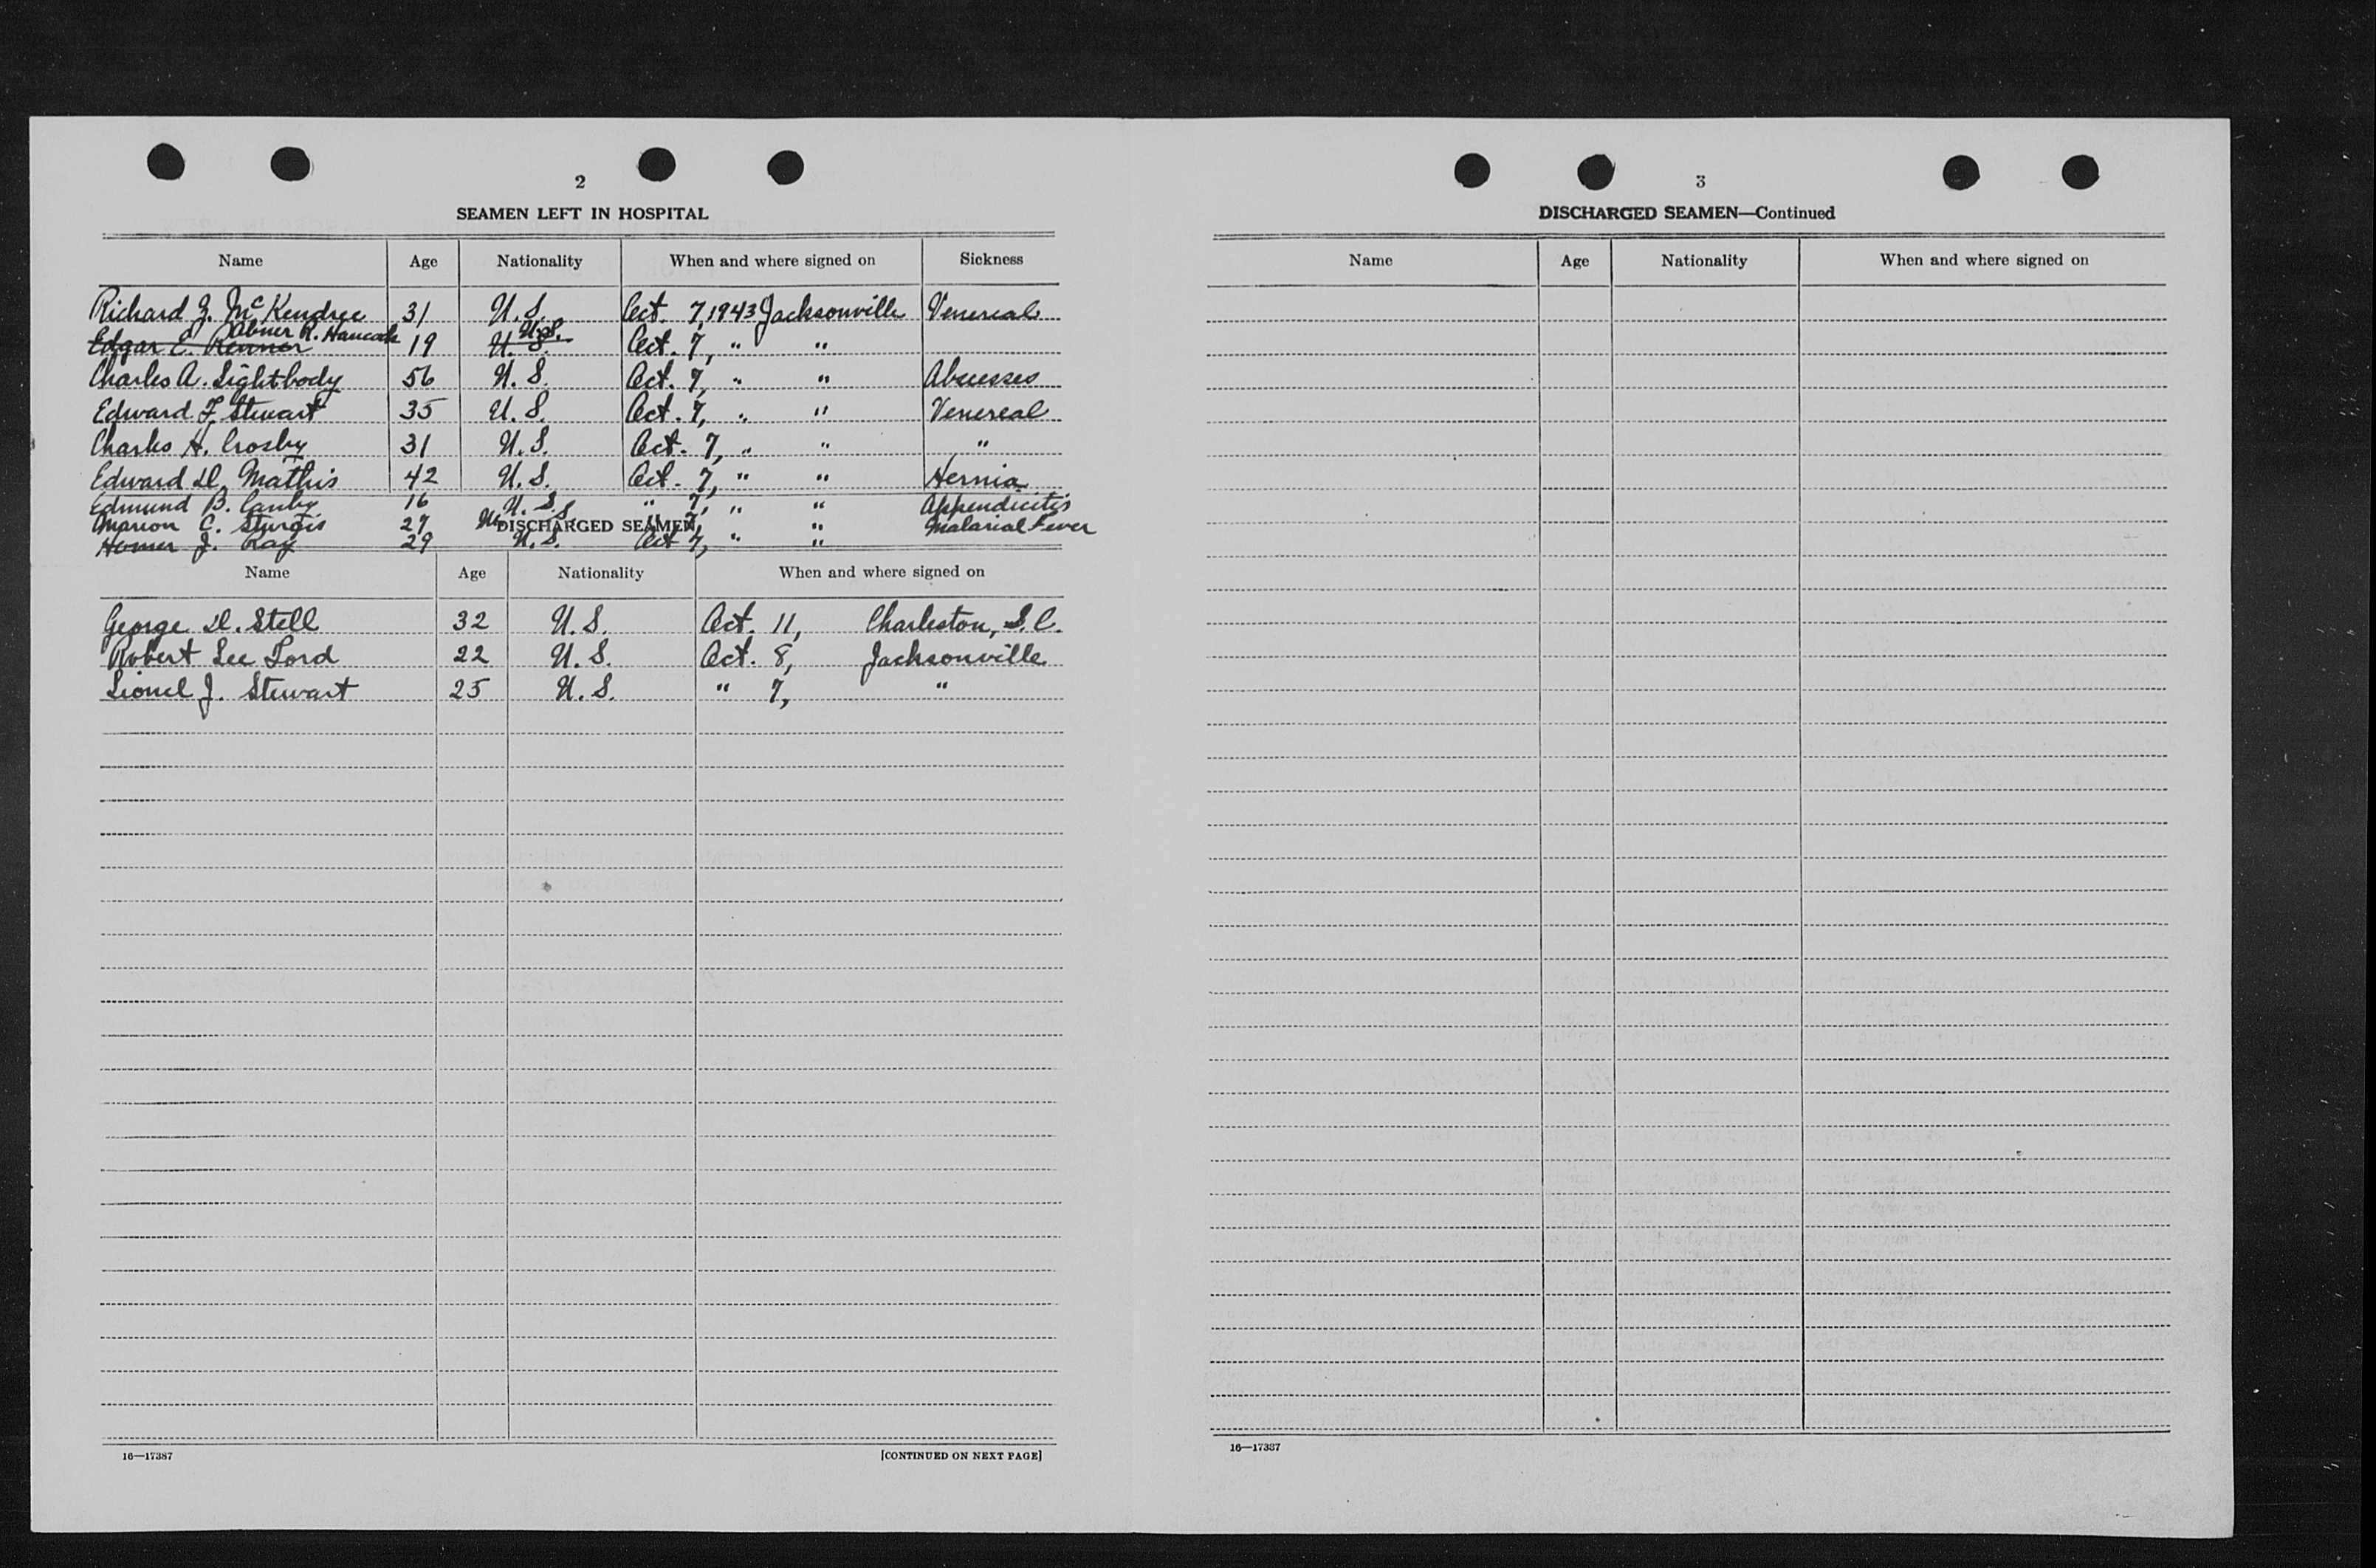 2
SEAMEN LEFT IN HOSPITAL
Name Age Nationality When and where signed on Sickness
Richard Z. McKendree 31 U.S. Oct. 7, 1943 Jacksonville Venereal
Abner R. Hancock U.S.
Edgar E. Renner 19 U.S. Oct. 7, " "
Charles A. Lightbody 56 U.S. Oct. 7, " " Abscesses
Edward F. Stewart 35 U.S. Oct. 7, " " Venereal
Charles H. Crosby 31 U.S. Oct. 7, " " "
Edward D. Mathis 42 U.S. Oct. 7, " " Hernia
Edmund B. Canby 16 U.S. " 7, " " Appendicitis
Marion C. Sturgis 27 U.S. " 7, " Malarial Fever
DISCHARGED SEAMEN
Homer J. Ray 29 U.S. Oct 7, " "
Name Age Nationality When and where signed on
George D. Stell 32 U.S. Oct. 11, Charleston, S.C.
Robert Lee Lord 22 U.S. Oct. 8, Jacksonville
Lionel J. Stewart 25 U.S. " 7, "
16—17387 [CONTINUED ON NEXT PAGE]
3
DISCHARGED SEAMEN—Continued
Name Age Nationality When and where signed on
16—17387